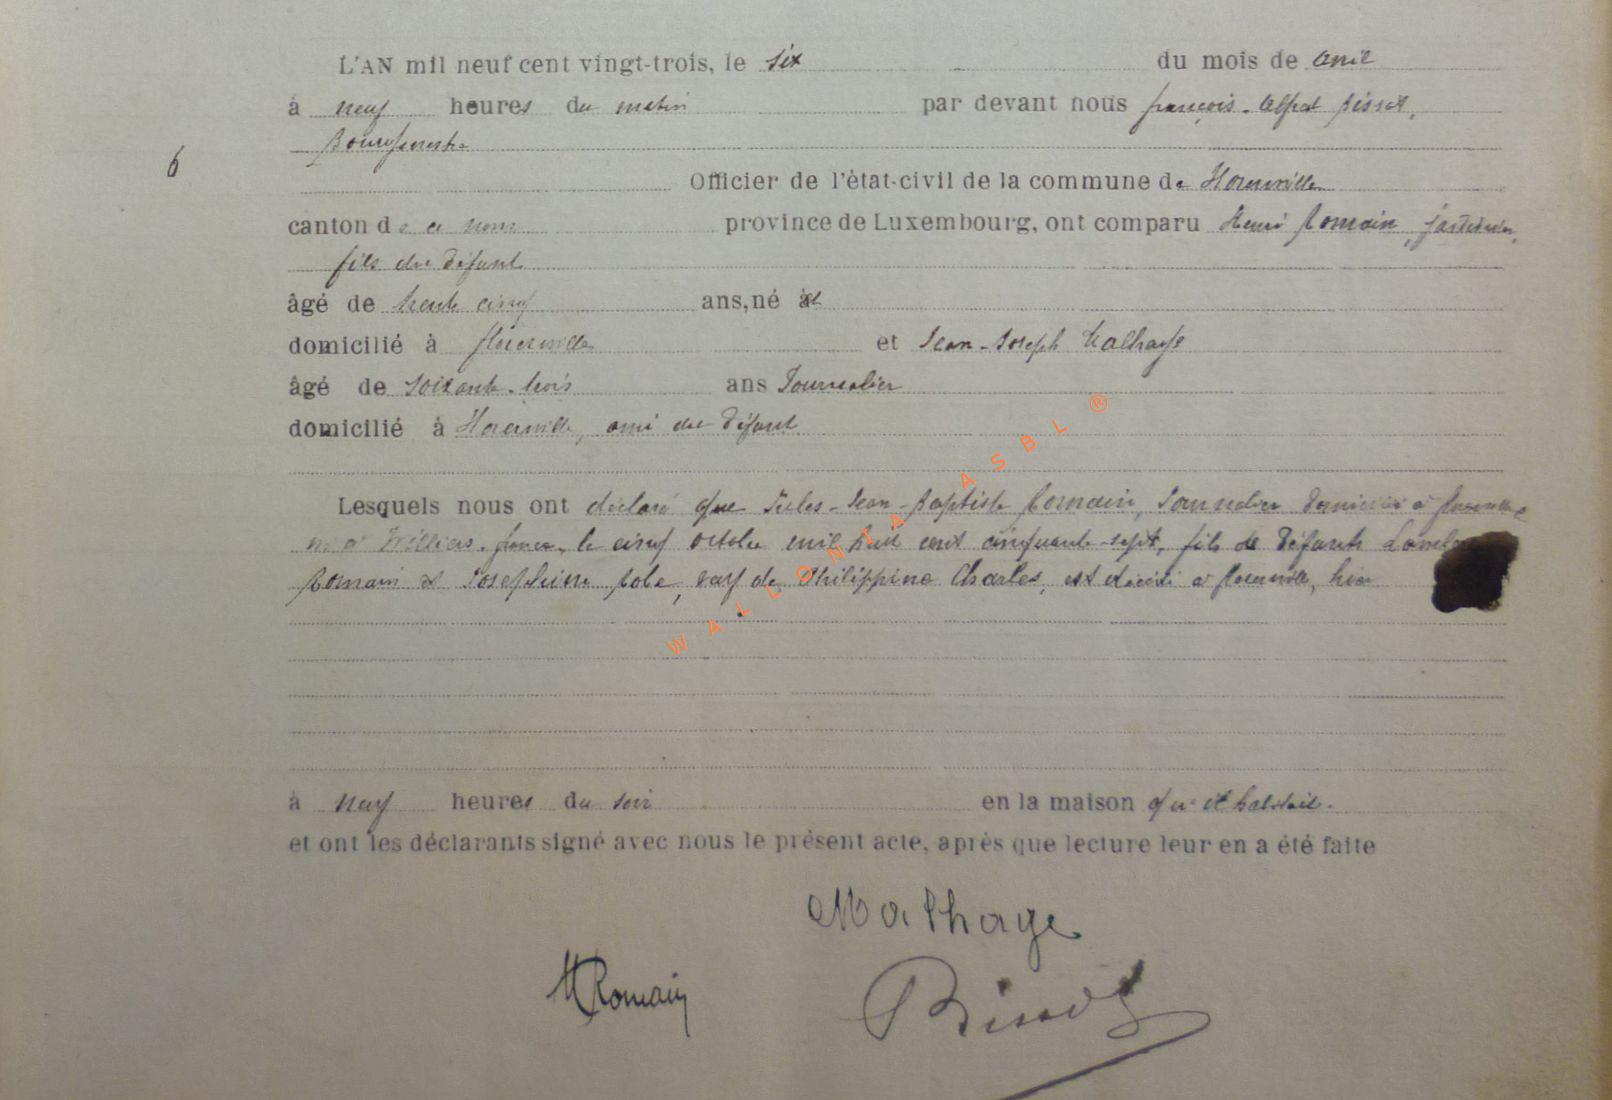 L'AN mil neuf cent vingt-trois, le six du mois de avril
à neuf heures du matin par devant nous françois-Alfred Bissot,
Bourgmestre
6
Officier de l'état-civil de la commune de
canton de ce nom province de Luxembourg, ont comparu Henri Romain, jardinier,
fils du défunt
âgé de trente cinq ans, né à
domicilié à et Jean-Joseph Malhage
âgé de soixante-trois ans Journalier
domicilié à ami du défunt
Lesquels nous ont déclaré que Jules-Jean-Baptiste Romain, Journalier domicilié à
né à france, le cinq octobre mil huit cent cinquante-sept, fils de défunts
Romain et Joséphine veuf de Philippine Charles, est décédé à hier
à neuf heures du soir en la maison qu'il habitait.
et ont les déclarants signé avec nous le présent acte, après que lecture leur en a été faite
Malhage
H Romain
Bissot
WALLONIA ASBL ®